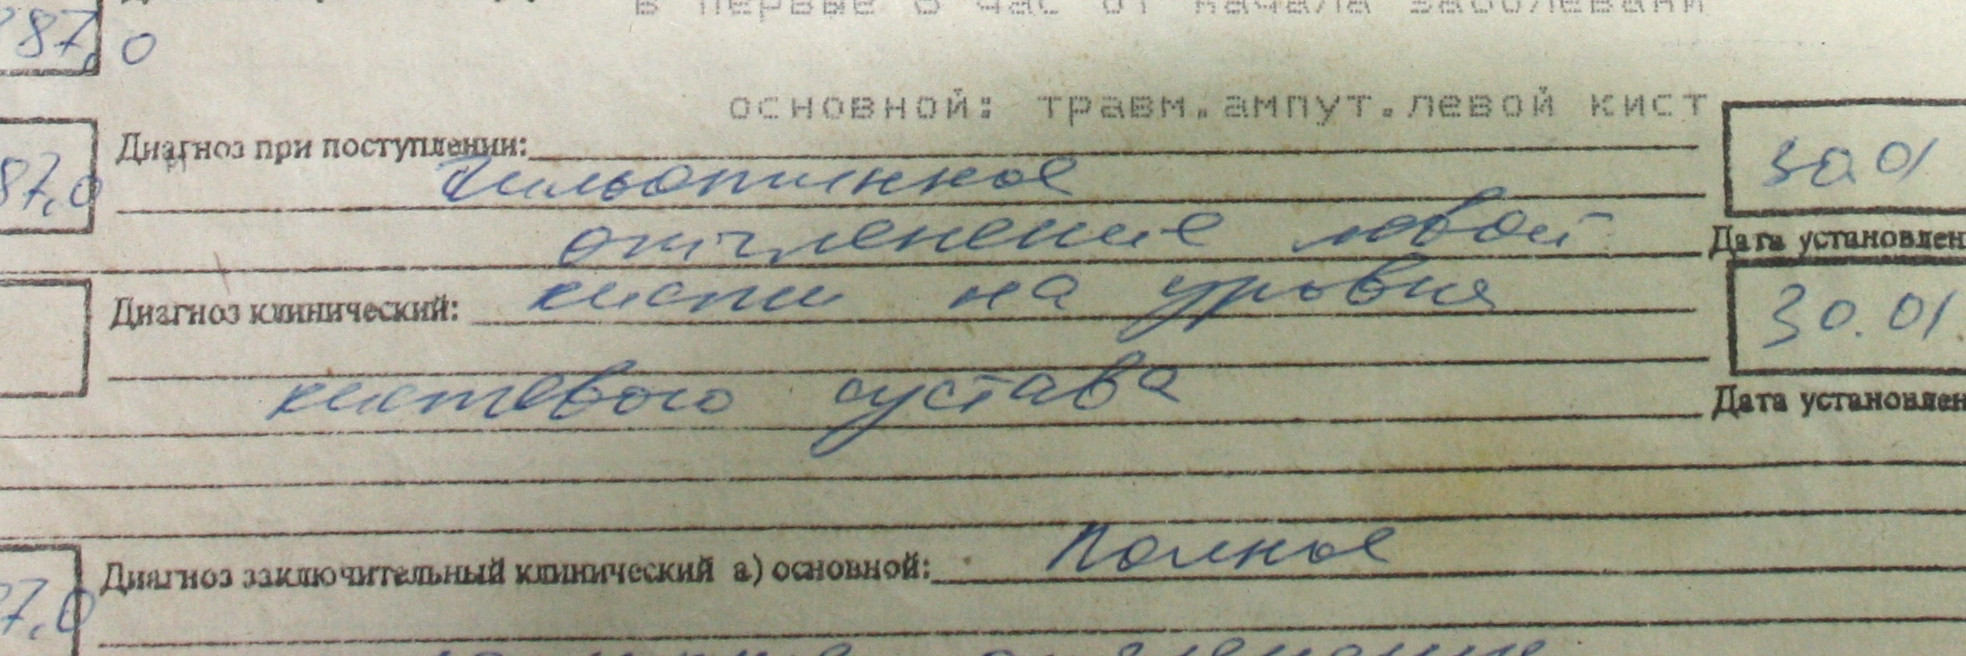 в первые 6 час от начала заболевани
87,0
основной: травм.ампут.левой кист
Диагноз при поступлении:
87,0 Гильотинное 30.01
отчленение левой
Дата установлен
Диагноз клинический: кисти на уровне 30.01
кистевого сустава
Дата установлен
Диагноз заключительный клинический а) основной: Полное
7,0
отчленение